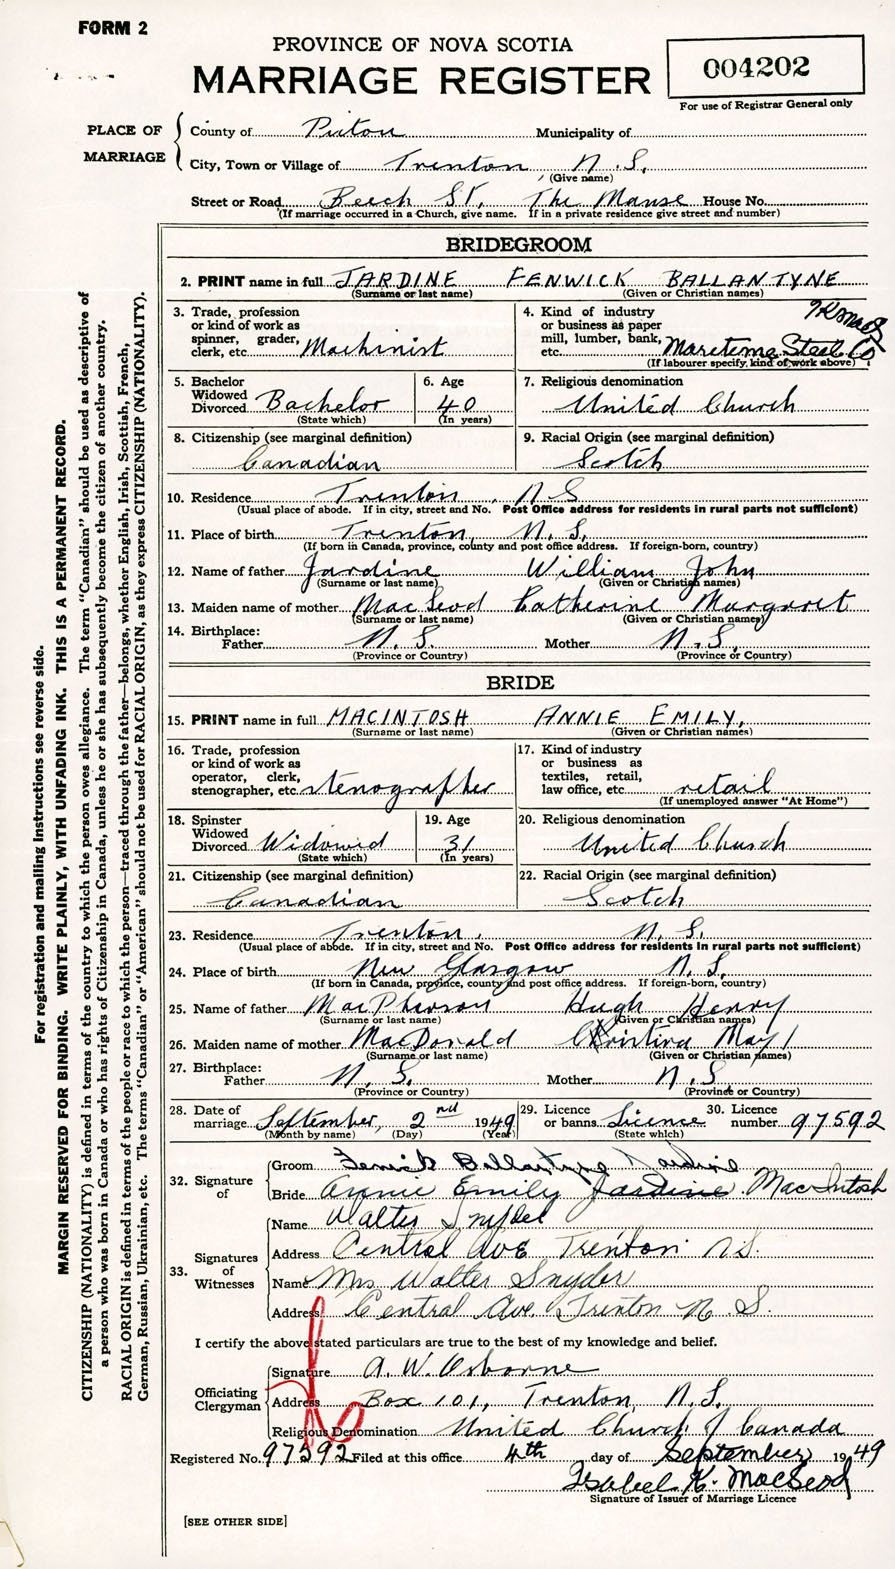 FORM 2
PROVINCE OF NOVA SCOTIA
MARRIAGE REGISTER
004202
For use of Registrar General only
PLACE OF MARRIAGE
County of Pictou Municipality of
City, Town or Village of Trenton, N.S.
(Give name)
Street or Road Beech St, The Manse House No.
(If marriage occurred in a Church, give name. If in a private residence give street and number)
BRIDEGROOM
2. PRINT name in full JARDINE FENWICK BALLANTYNE
(Surname or last name) (Given or Christian names)
3. Trade, profession or kind of work as spinner, grader, clerk, etc. Machinist
4. Kind of industry or business as paper mill, lumber, bank, etc. Maretime Steel Co
(If labourer specify, kind of work above)
5. Bachelor Widowed Divorced Bachelor
(State which)
6. Age 40
(In years)
7. Religious denomination
United Church
8. Citizenship (see marginal definition)
Canadian
9. Racial Origin (see marginal definition)
Scotch
10. Residence Trenton, N S
(Usual place of abode. If in city, street and No. Post Office address for residents in rural parts not sufficient)
11. Place of birth Trenton, N.S.
(If born in Canada, province, county and post office address. If foreign-born, country)
12. Name of father Jardine William John
(Surname or last name) (Given or Christian names)
13. Maiden name of mother MacLeod Catherine Margaret
(Surname or last name) (Given or Christian names)
14. Birthplace:
Father N.S. Mother N.S.
(Province or Country) (Province or Country)
BRIDE
15. PRINT name in full MACINTOSH ANNIE EMILY,
(Surname or last name) (Given or Christian names)
16. Trade, profession or kind of work as operator, clerk, stenographer, etc. stenographer
17. Kind of industry or business as textiles, retail, law office, etc. retail
(If unemployed answer "At Home")
18. Spinster Widowed Divorced Widowid
(State which)
19. Age 31
(In years)
20. Religious denomination
United Church
21. Citizenship (see marginal definition)
Canadian
22. Racial Origin (see marginal definition)
Scotch
23. Residence Trenton, N.S.
(Usual place of abode. If in city, street and No. Post Office address for residents in rural parts not sufficient)
24. Place of birth New Glasgow N.S.
(If born in Canada, province, county and post office address. If foreign-born, country)
25. Name of father MacPherson Hugh Henry
(Surname or last name) (Given or Christian names)
26. Maiden name of mother MacDonald Christina May
(Surname or last name) (Given or Christian names)
27. Birthplace:
Father N.S. Mother N.S
(Province or Country) (Province or Country)
28. Date of marriage September, 2nd 1949
(Month by name) (Day) (Year)
29. Licence or banns Licence
(State which)
30. Licence number 97592
32. Signature of
Groom Fenwick Ballantyne Jardine
Bride Annie Emily Jardine MacIntosh
33. Signatures of Witnesses
Name Walter Snyder
Address Central Ave Trenton N.S.
Name Mrs Walter Snyder
Address Central Ave Trenton N S.
I certify the above stated particulars are true to the best of my knowledge and belief.
Officiating Clergyman
Signature A. W. Osborne
Address Box 101, Trenton, N.S.
Religious Denomination United Church of Canada
Registered No. 97592 Filed at this office 4th day of September 1949
Isabel K. MacLeod
Signature of Issuer of Marriage Licence
[SEE OTHER SIDE]
For registration and mailing instructions see reverse side.
MARGIN RESERVED FOR BINDING. WRITE PLAINLY, WITH UNFADING INK. THIS IS A PERMANENT RECORD.
CITIZENSHIP (NATIONALITY) is defined in terms of the country to which the person owes allegiance. The term "Canadian" should be used as descriptive of
a person who was born in Canada or who has rights of Citizenship in Canada, unless he or she has subsequently become the citizen of another country.
RACIAL ORIGIN is defined in terms of the people or race to which the person—traced through the father—belongs, whether English, Irish, Scottish, French,
German, Russian, Ukrainian, etc. The terms "Canadian" or "American" should not be used for RACIAL ORIGIN, as they express CITIZENSHIP (NATIONALITY).